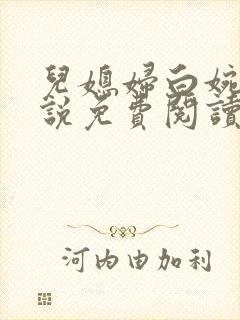 兒媳婦白婉
說免費閱讀
河内由加利